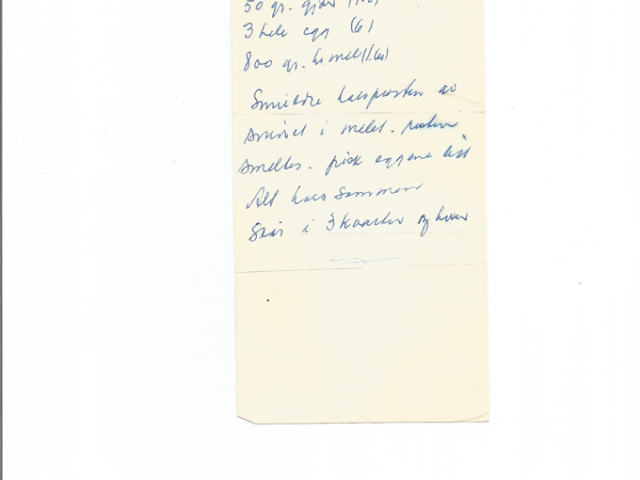 50 gr. gjær (100)
3 hele egg (6)
800 gr. h.mel (1.6)
Smuldre halvparten av
smøret i melet. resten
smeltes. pisk eggene litt
Alt has sammen
Står i 3 kvarter og hever